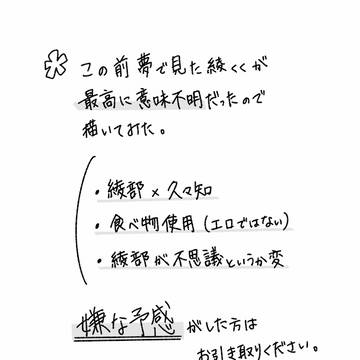 この前夢で見た綾くくが
最高に意味不明だったので
描いてみた。
・綾部×久々知
・食べ物使用(エロではない)
・綾部が不思議というか変
嫌な予感がした方は
お引き取りください。